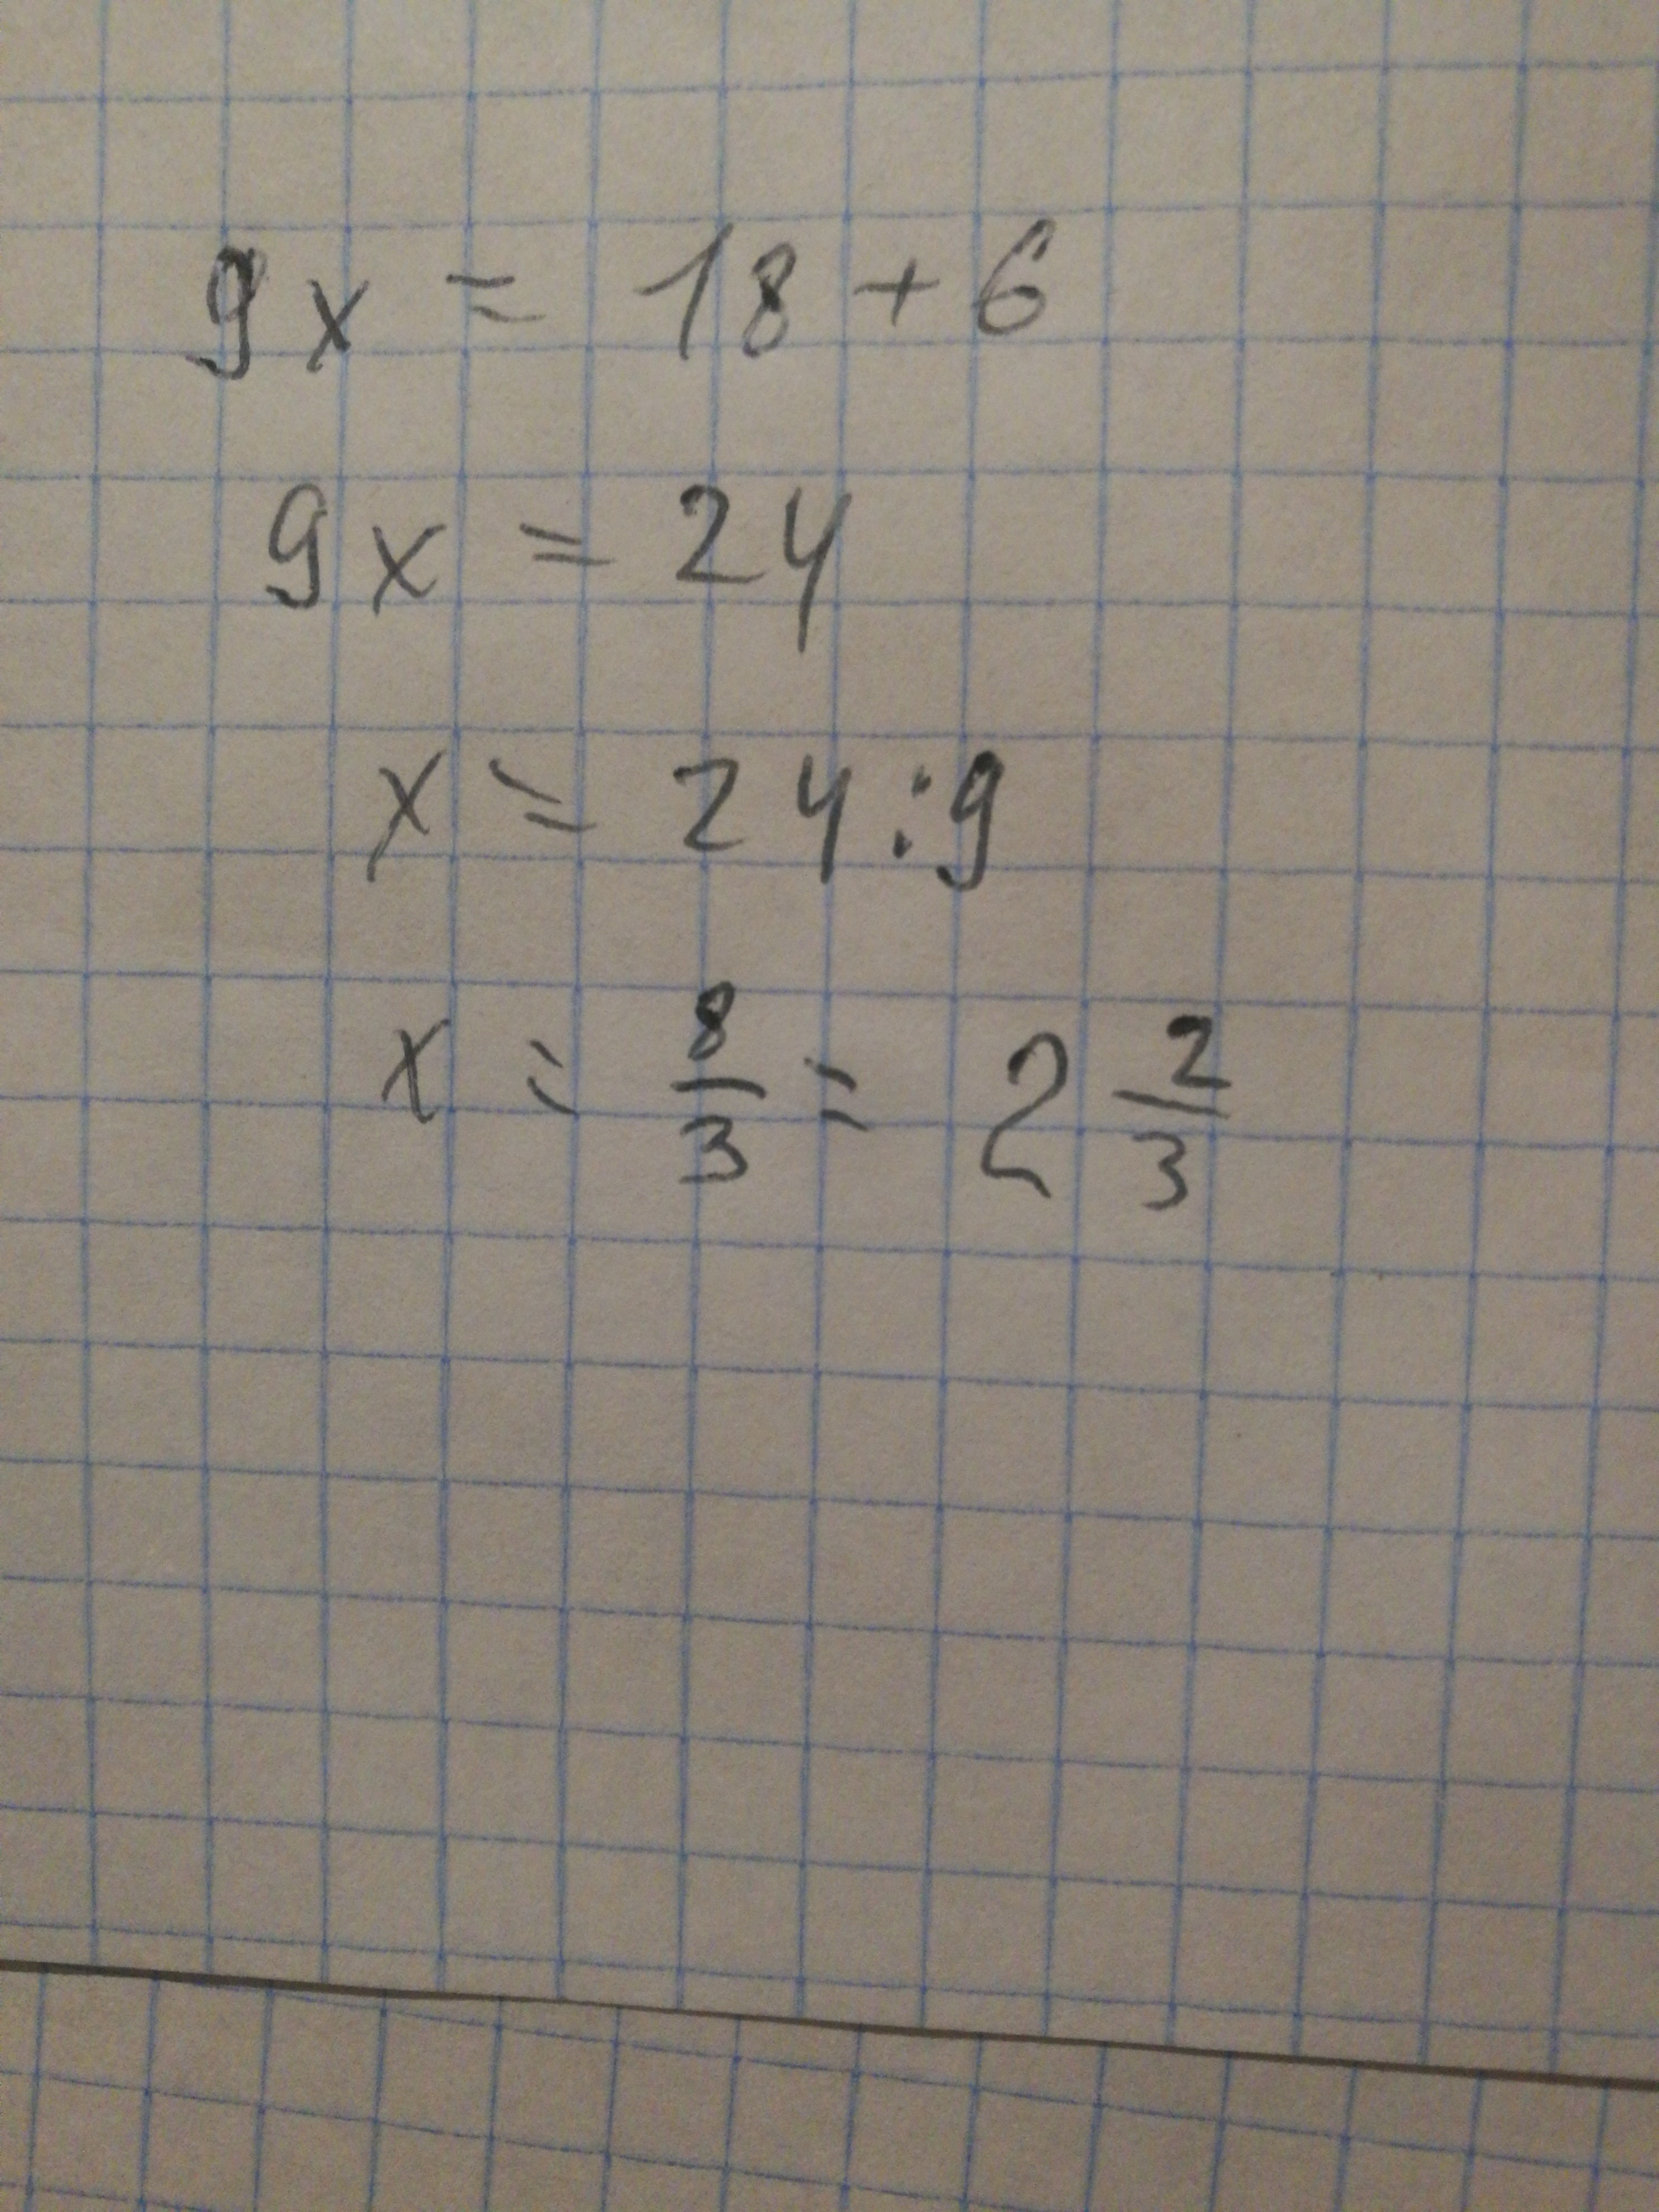 9x = 18 + 6
9x = 24
x = 24 : 9
x = 8/3 = 2 2/3